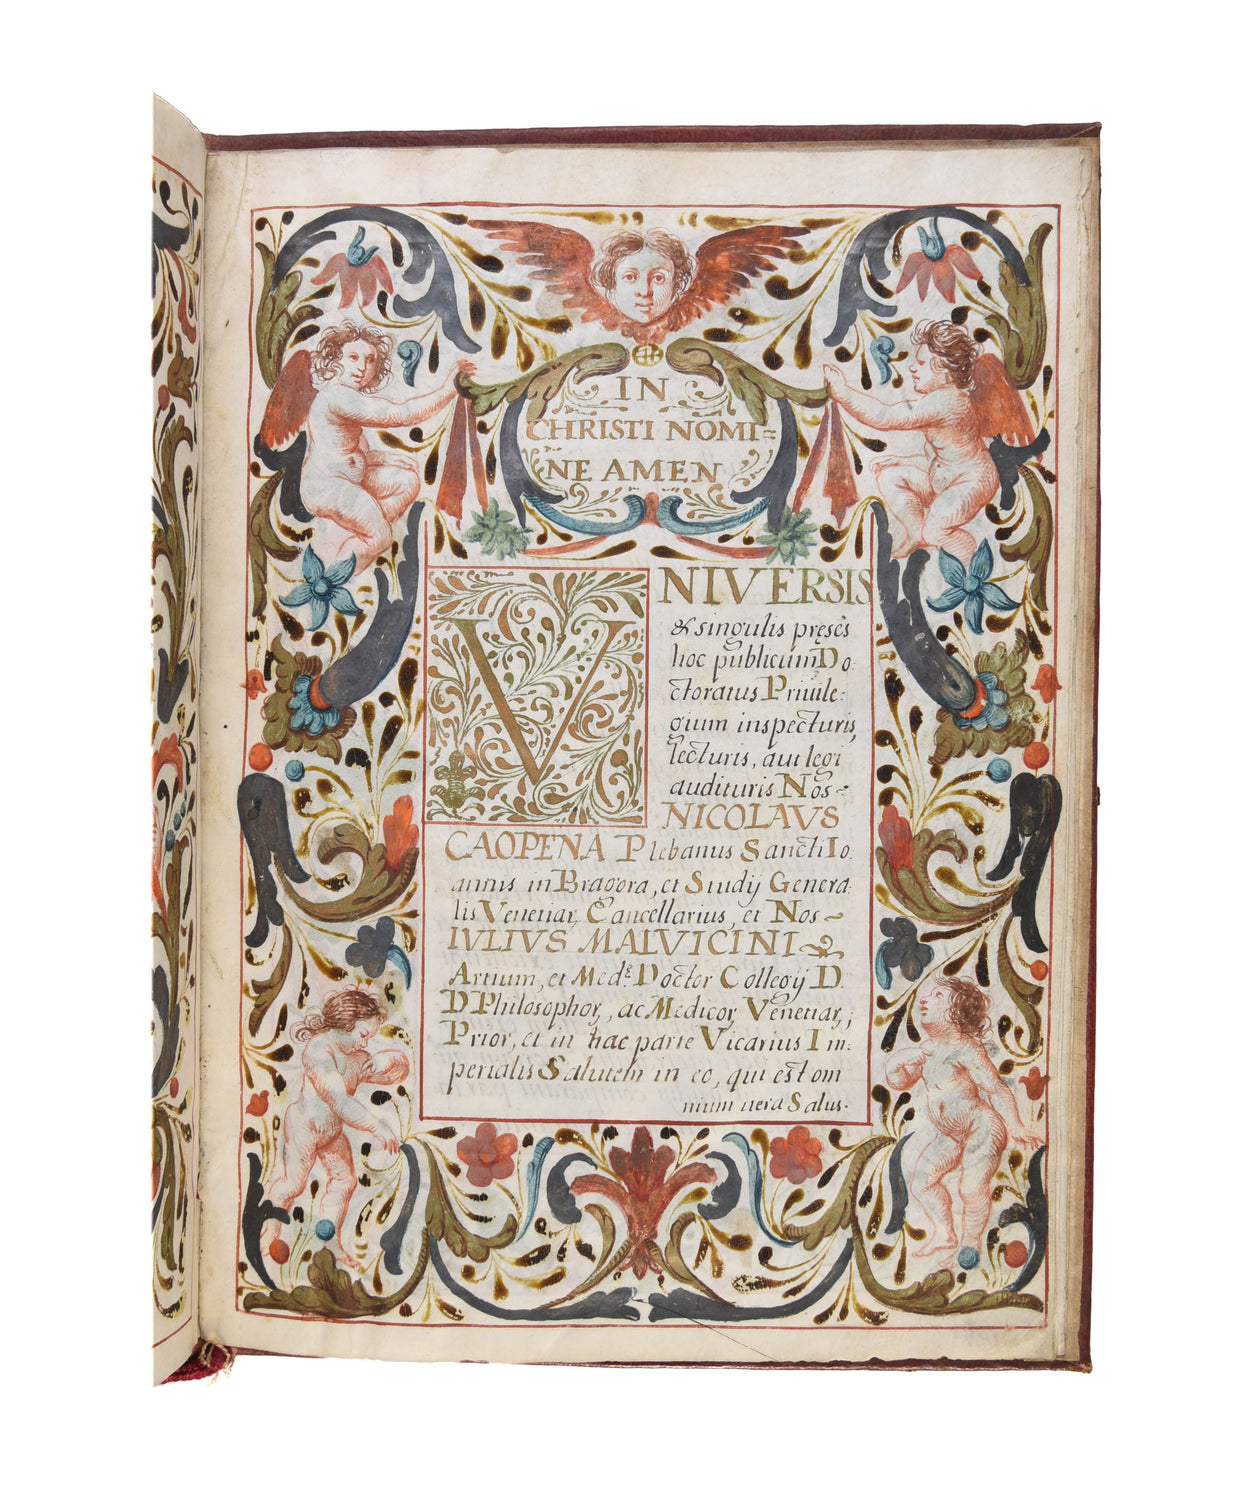 IN
CHRISTI NOMI=
NE AMEN
VNIVERSIS
& singulis pręsēs
hoc publicum Do:
ctoratus Priuile:
gium inspecturis,
lecturis, aut legi
audituris Nos~
NICOLAVS
CAOPENA Plebanus Sancti Io:
annis in Bragora, et Studij Genera:
lis Venetiar, Cancellarius, et Nos~
IVLIVS MALVICINI
Artium, et Med: Doctor Collegij D.
D Philosophor, ac Medicor Venetiar,;
Prior, et in hac parte Vicarius Im:
perialis Salutem in eo, qui est om
nium uera Salus.